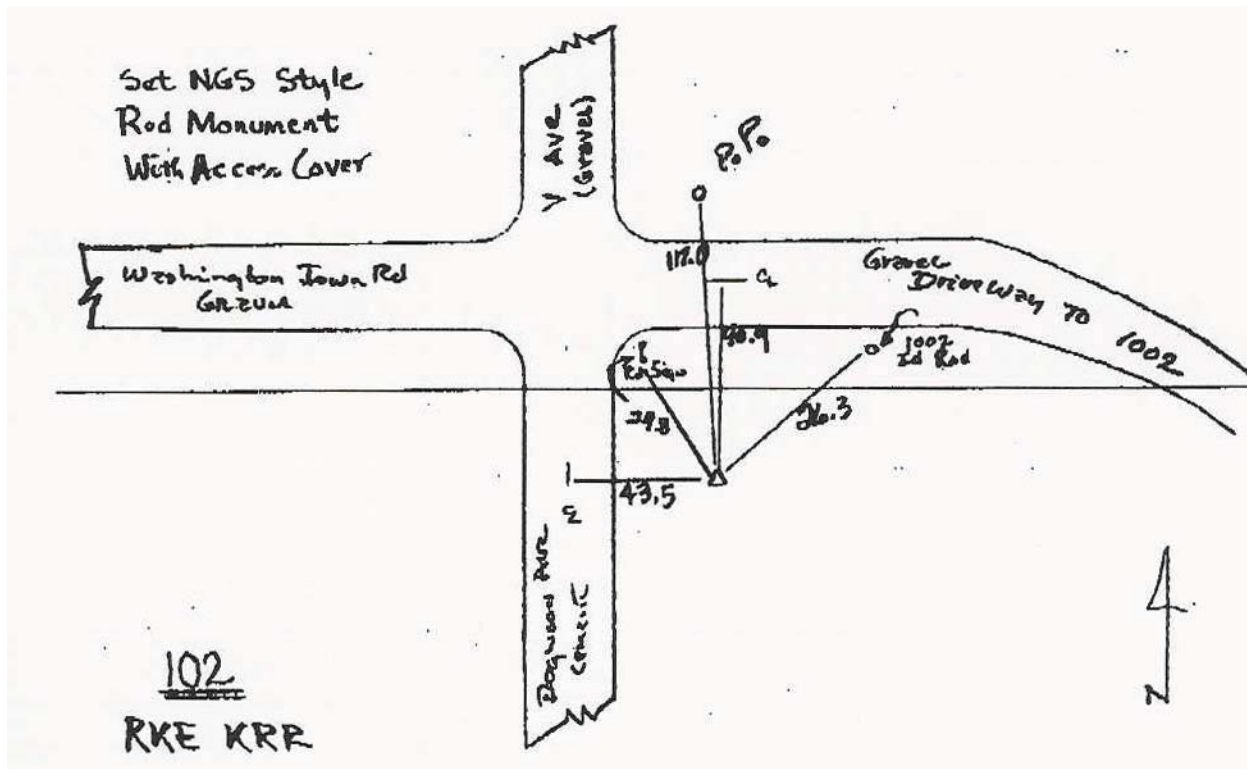 Set NGS Style
Rod Monument
With Access Cover
V AVE
(Gravel)
P.P.
Washington Town Rd
Gravel
117.0
CL
Gravel
Driveway TO 1002
1002
Rod
26.3
43.5
CL
Dogwood Ave
Cement
N
102
RKE KRR